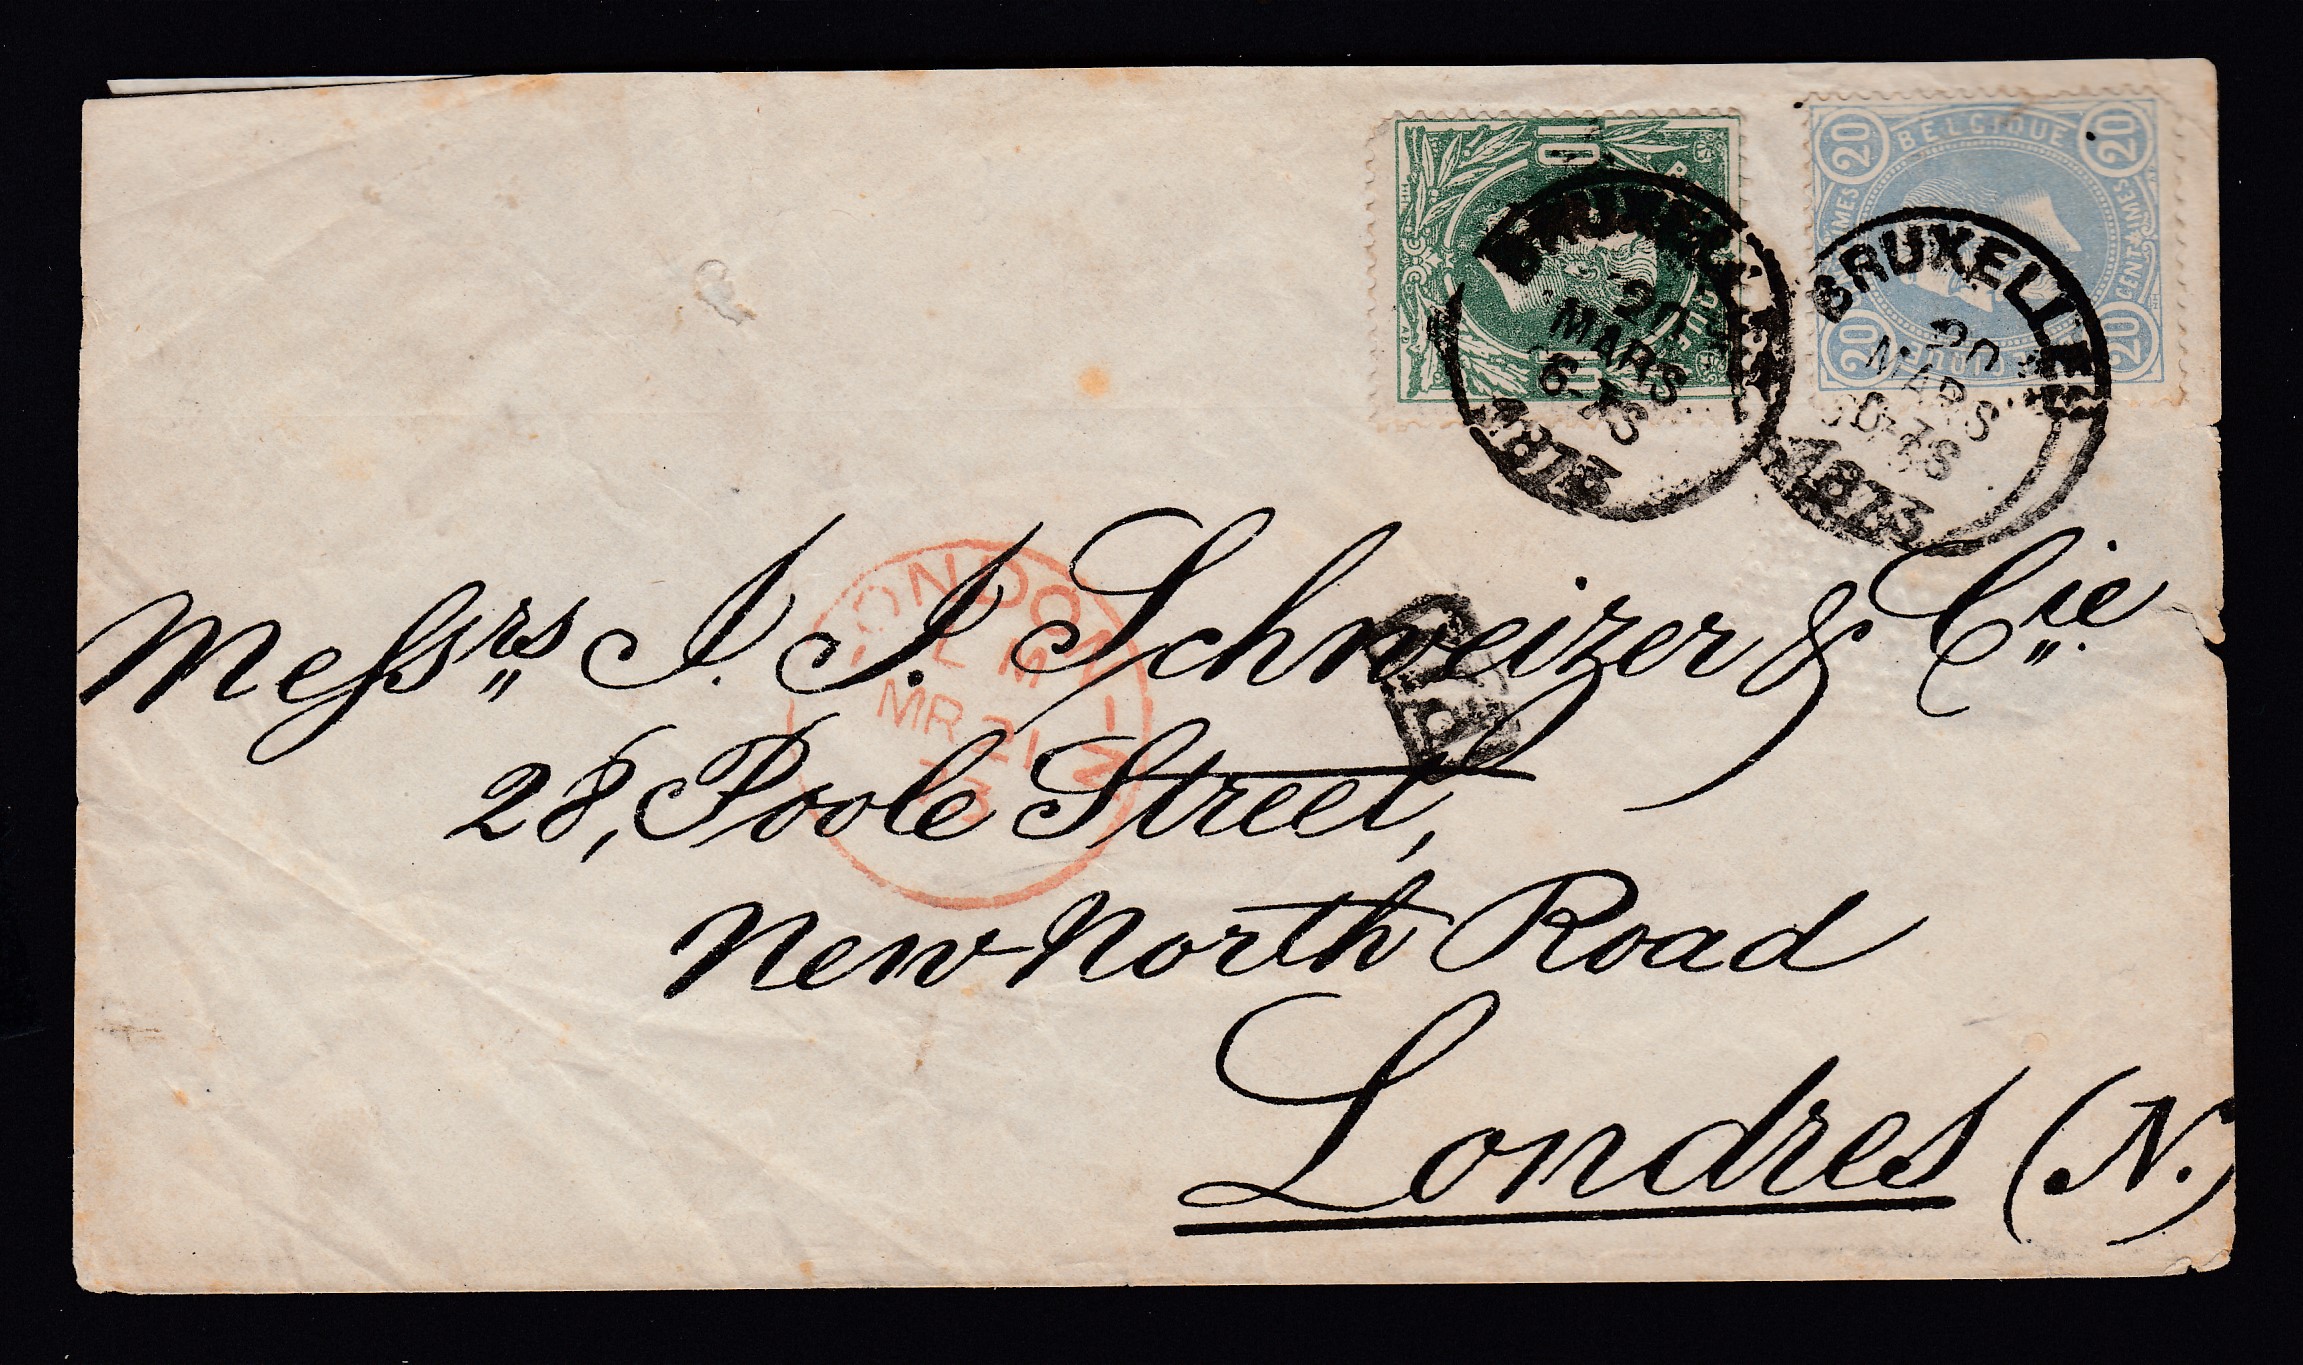 10
10
BELGIQUE
20 20
CENTIMES
20 20
BRUXELLES
20
MARS
6-7S
1873
BRUXELLES
20
MARS
6-7S
1873
LONDON
L M
MR 21
73
PD
Messrs,, J. J. Schweizer & Cie,,
28, Poole Street,
New North Road
Londres (N.)